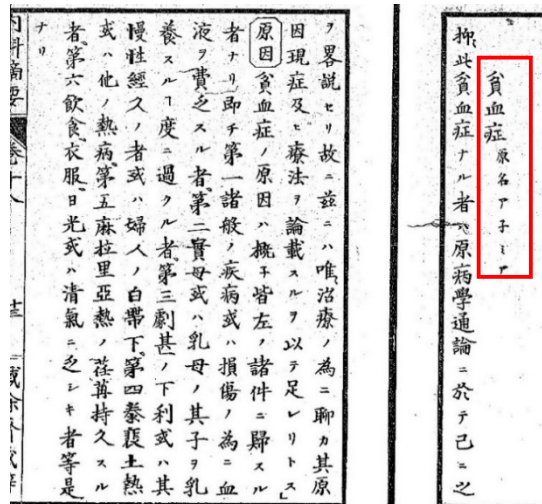 貧血症 原名ア子ミア
抑此貧血症ナル者ハ原病學通論ニ於テ已ニ之
ヲ畧説セリ故ニ茲ニハ唯治療ノ為ニ聊カ其原
因現症及ヒ療法ヲ論載スルヲ以テ足レリトス」
原因 貧血症ノ原因ハ概子皆左ノ諸件ニ歸スル
者ナリ即チ第一諸般ノ疾病或ハ損傷ノ為ニ血
液ヲ費乏スル者第二實母或ハ乳母ノ其子ヲ乳
養スルヿ度ニ過クル者第三劇甚ノ下利或ハ其
慢性經久ノ者或ハ婦人ノ白帶下第四土熱
或ハ他ノ熱病第五麻拉里亞熱ノ荏苒持久スル
者第六飲食衣服日光或ハ清氣ニ乏シキ者等是
ナリ
内科摘要 卷十八